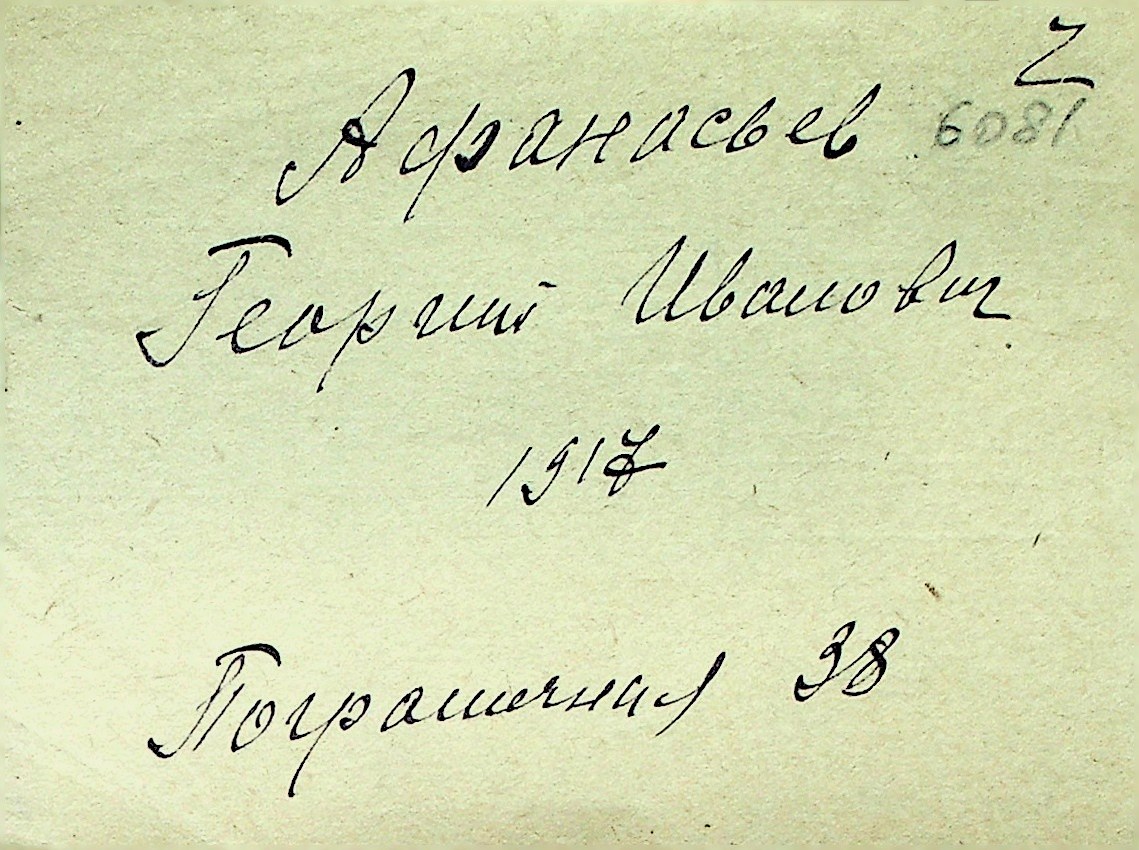 2
6081
Афанасьев
Георгий Иванович
1917
Пограничная 38